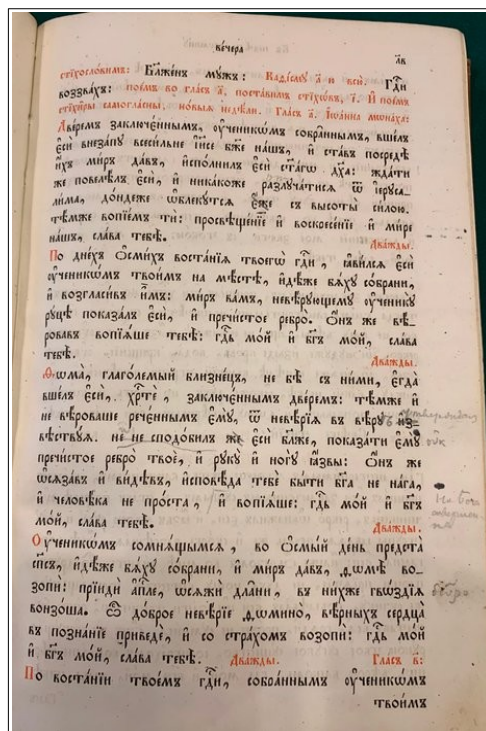 ве́чера
л҃в
стїхосло́вимъ: Бл҃же́нъ мꙋ́жъ: Каѳі́смꙋ а҃ ю всю̀. Гд҇и
воззва́хъ: пое́мъ во гла́съ а҃. поста́вимъ стїхѡ́въ, і҃. И҆ пое́мъ
стїхи̑ры самогла́сны, но́выѧ недѣ́ли. Гла́съ а҃. І҆ѡа́нна мона́ха:
Две́ремъ заключе́ннымъ, ᲂу҆ченикѡ́мъ со́браннымъ, вше́лъ
є҆сѝ внеза́пꙋ всеси́льне і҆и҃се бж҃е на́шъ, и҆ ста́въ посредѣ̀
и҆́хъ ми́ръ да́въ, и҆спо́лнилъ є҆сѝ ст҃а́гѡ дх҃а: жда́ти
же повелѣ́лъ є҆сѝ, и҆ ника́коже разлꙋча́тисѧ ѿ і҆ерꙋса-
ли́ма, до́ндеже ѡ҆блекꙋ́тсѧ є҆́же съ высоты̀ си́лою.
тѣ́мже вопїе́мъ тѝ: просвѣще́нїе и҆ воскресе́нїе и҆ ми́ре
на́шъ, сла́ва тебѣ̀.
Два́жды.
По дне́хъ ѻ҆сми́хъ воста́нїѧ твоегѡ̀ гд҇и, ꙗ҆ви́лсѧ є҆сѝ
ᲂу҆ченикѡ́мъ твои̑мъ на мѣ́стѣ, и҆дѣ́же бѧ́хꙋ со́брани,
и҆ возгласи́въ и҆̀мъ: ми́ръ ва́мъ, невѣ́рꙋющемꙋ ᲂу҆ченикꙋ̀
рꙋ́цѣ показа́лъ є҆сѝ, и҆ пречи́стое ребро̀. Ѻ҆́нъ же вѣ́-
ровавъ вопїѧ́ше тебѣ̀: гд҇ь мо́й и҆ бг҃ъ мо́й, сла́ва
тебѣ̀.
Два́жды.
Ѳѡма̀, глаго́лемый близне́цъ, не бѣ̀ съ ни́ми, є҆гда̀
вше́лъ є҆сѝ, хр҇тѐ, заключє́ннымъ две́ремъ: тѣ́мже и҆
не вѣ́роваше рече́ннымъ є҆мꙋ̀, ѿ невѣ́рїѧ въ вѣ́рꙋ и҆з-
вѣ́ствꙋѧ. не не сподо́билъ же є҆сѝ бл҃же, показа́ти є҆мꙋ̀
пречи́стое ребро̀ твоѐ, и҆ рꙋкꙋ̀ и҆ но́гꙋ ꙗ҆́звы: ѻ҆́нъ же
ѡ҆сѧза́въ и҆ ви́дѣвъ, и҆сповѣ́да тебѐ бы́ти бг҃а не на́га,
и҆ человѣ́ка не про́ста, и҆ вопїѧ́ше: гд҇ь мо́й и҆ бг҃ъ
мо́й, сла́ва тебѣ̀.
Два́жды.
ᲂу҆ченикѡ́мъ сомнѧ́щымсѧ, во ѻ҆смы́й де́нь предста̀
сп҃съ, и҆дѣ́же бѧ́хꙋ со́брани, и҆ ми́ръ да́въ, ѳѡмѣ̀ во-
зопѝ: прїидѝ а҆п҇ле, ѡ҆сѧжѝ дла́ни, въ ни́хже гво́здїѧ
вонзо́ша. Ѽ до́брое невѣ́рїе ѳѡмино̀, вѣ́рныхъ сердца̀
въ позна́нїе приведѐ, и҆ со стра́хомъ возопѝ: гд҇ь мо́й
и҆ бг҃ъ мо́й, сла́ва тебѣ̀. Два́жды. Гла́съ в҃:
По воста́нїи твое́мъ гд҇и, собра̑ннымъ ᲂу҆ченикѡ́мъ
твои̑мъ